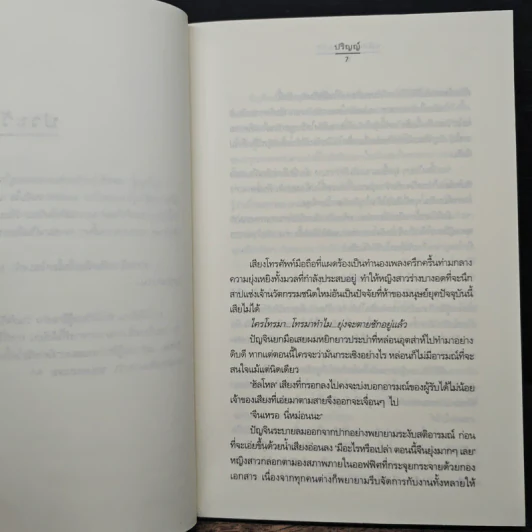 ปริญญ์
7
เสียงโทรศัพท์มือถือที่แผดร้องเป็นทำนองเพลงครึกครื้นท่ามกลาง
ความยุ่งเหยิงทั้งมวลที่กำลังประสบอยู่ ทำให้หญิงสาวร่างบางอดที่จะนึก
สาปแช่งเจ้านวัตกรรมชนิดใหม่อันเป็นปัจจัยที่ห้าของมนุษย์ยุคปัจจุบันนี้
เสียไม่ได้
ใครโทรมา...โทรมาทำไม...ยุ่งจะตายชักอยู่แล้ว
ปัญจีนยกมือเสยผมหยิกยาวประบ่าที่หล่อนอุตส่าห์ไปทำมาอย่าง
ดิบดี หากแต่ตอนนี้ใครจะว่ามันกระเซิงอย่างไร หล่อนก็ไม่มีอารมณ์ที่จะ
สนใจแม้แต่นิดเดียว
'ฮัลโหล' เสียงที่กรอกลงไปคงจะบ่งบอกอารมณ์ของผู้รับได้ไม่น้อย
เจ้าของเสียงที่เอ่ยมาตามสายจึงออกจะเจื่อนๆ ไป
'จีนเหรอ นี่หม่อนนะ'
ปัญจีนระบายลมออกจากปากอย่างพยายามระงับสติอารมณ์ ก่อน
ที่จะเอ่ยขึ้นด้วยน้ำเสียงอ่อนลง 'มีอะไรหรือเปล่า ตอนนี้จีนยุ่งมากๆ เลย'
หญิงสาวกลอกตามองสภาพภายในออฟฟิศที่กระจุยกระจายด้วยกอง
เอกสาร เนื่องจากทุกคนต่างก็พยายามรีบจัดการกับงานทั้งหลายให้